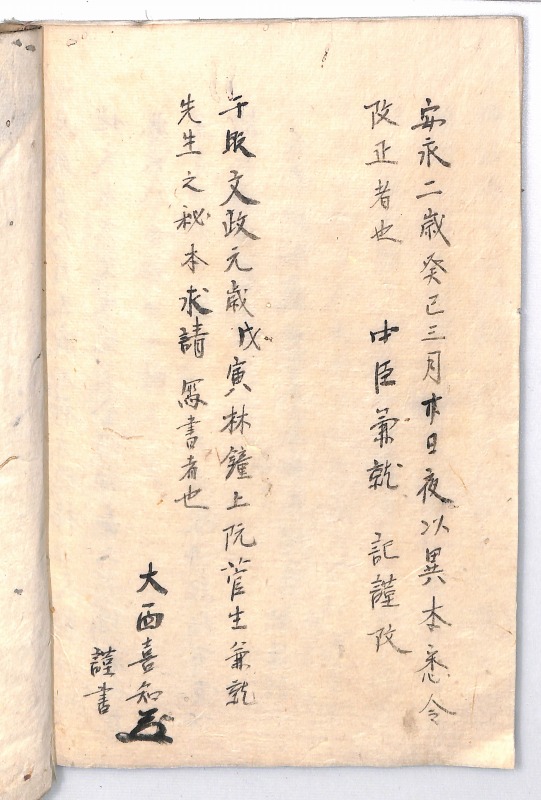 安永二歳癸巳三月廿日夜以異本悉令
改正者也　中臣兼就　記謹改
于時文政元歳戊寅林鐘上院菅生兼就
先生之秘本求請写書者也
大西喜知
謹書